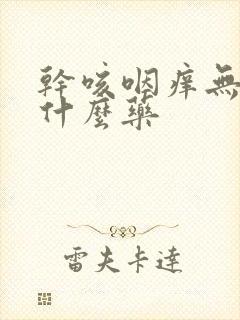 幹咳咽痒無
什麼藥
雷夫卡達